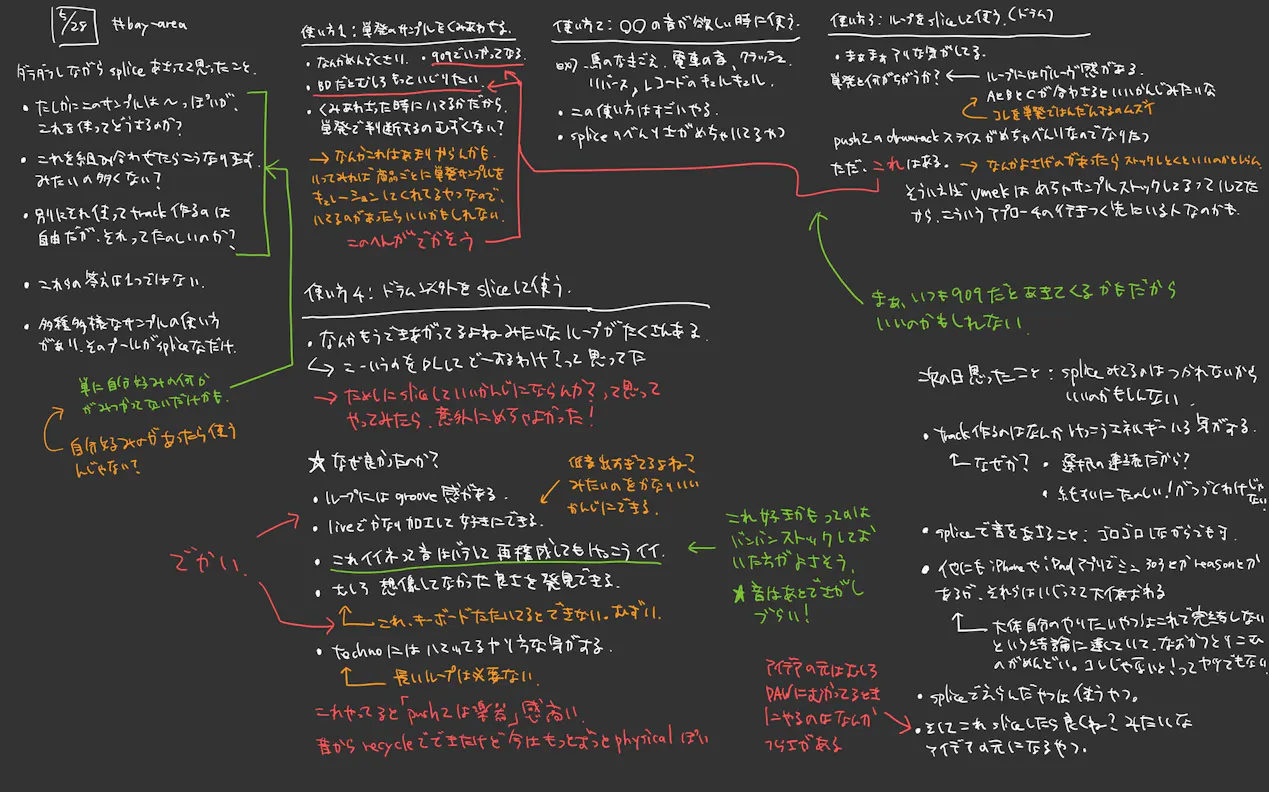 5/28 #bay-area
ダラダラしながらspliceあさってて思ったこと.
・たしかにこのサンプルは〜っぽいが、
これを使ってどうするのか?
・これを組み合わせたらこうなります.
みたいの多くない?
・別にそれ使ってtrack作るのは
自由だが、それってたのしいのか?
・これらの答えは1つではない.
・多種多様なサンプルの使い方
があり、そのプールがspliceなだけ.
単に自分好みの何か
がみつかってないだけかも.
自分好みのがあったら使う
んじゃない?
使い方1:単発のサンプルをくみあわせる.
・なんかめんどくさい. ・909でいっかってなる.
・BDだとむしろもっといじりたい
・くみあわさった時にハマるかだから、
単発で判断するのむずくない?
→なんかこれはあまりやらんかも.
いってみれば商品ごとに単発サンプルを
キュレーションしてくれてるやつなので、
ハマるのがあったらいいかもしれない.
このへんがでかそう
使い方2:○○の音が欲しい時に使う.
・例.馬のなきごえ、電車の音、クラッシュ、
リバース,レコードのキュルキュル.
・この使い方はすごいやる.
・spliceのべんりさがめちゃハマるやつ
使い方3:ループをsliceして使う.(ドラム)
・まぁまぁアリな気がしてる.
単発と何がちがうか? ← ループにはグルーヴ感がある.
AとBとCが合わさるといいかんじみたいな
コレを単発ではんだんするのムズイ
push2のdrumrackスライスがめちゃべんりなのでなりたつ
ただ.これはある. →なんかよさげのがあったらストックしとくといいのかもしらん.
そういえばvmekはめちゃサンプルストックしてるっていってた
から、こういうアプローチの行きつく先にいる人なのかも.
まぁ、いつも909だとあきてくるかもだから
いいのかもしれない.
使い方4:ドラム以外をsliceして使う.
・なんかもうできあがってるよねみたいなループがたくさんある.
↳こーいうのをDLしてどーするわけ?って思ってた
→ためしにsliceしていいかんじにならんか?って思って
やってみたら、意外にめちゃよかった!
★なぜ良かったのか?
・ループにはgroove感がある.
・liveでかなり加工して好きにできる.
低音出すぎてるよね?
みたいのをかなりいい
かんじにできる.
・これイイネって音はバラして再構成してもけっこうイイ.
・むしろ想像してなかった良さを発見できる.
これ、キーボードたたいてるとできない.むずい.
・technoにはハマってるやり方な気がする.
長いループは必要ない.
でかい.
これやってると「push2は楽器」感高い.
昔からrecycleでできたけど今はもっとずっとphysicalぽい
これ好きかもってのは
バンバンストックしてお
いた方がよさそう.
★音はあとでさがし
づらい!
アイデアの元はむしろ
DAWにむかってるとき
にやるのはなんか
つらさがある
次の日思ったこと:spliceみてるのはつかれないから
いいのかもしんない.
・track作るのはなんかけっこうエネルギーいる気がする.
↳なぜか? ・選択の連続だから?
・純すいにたのしい!がつづくわけじゃない
・spliceで音をあさること:ゴロゴロしながらでもする.
・他にもiPhoneやiPadアプリでミニ303とかreasonとか
あるが、それらはいじってて大体あきる
大体自分のやりたいやつはこれで完結しない
という結論に達していて、なおかつとりこむ
のがめんどい.コレじゃないと!ってヤツでもない
・spliceでえらんだやつは使うやつ.
・そしてこれsliceしたら良くね?みたいな
アイデアの元になるやつ.